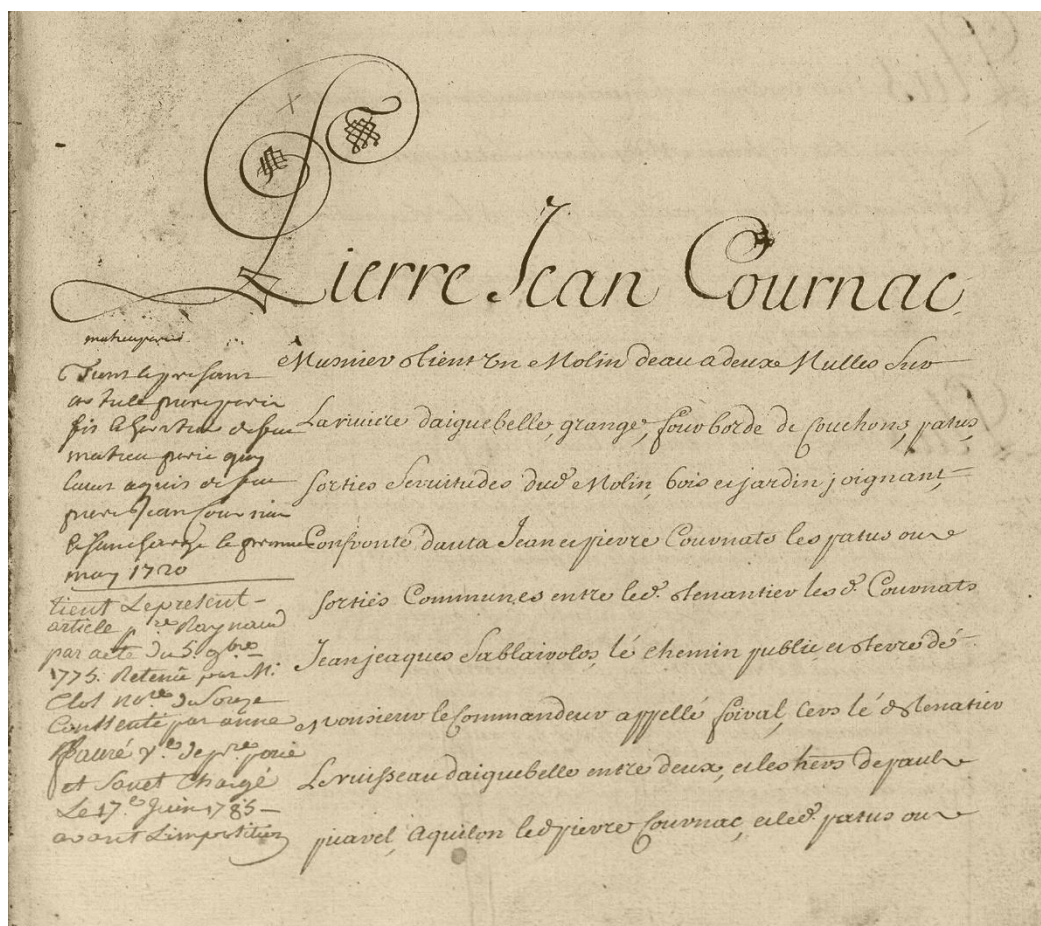 Pierre Jean Cournac
Musnier tient Un Molin deau a deux Mulles Sur
La riviere daiguebelle, grange, four borde de Couchons, patus,
sorties Servitudes dud. Molin, bois et jardin joignant,
Confronte dauta Jean et pierre Cournats les patus ou
sorties Communes entre led. tenantier lesd. Cournats
Jean jeaques Sablairolos, lé chemin public, et terre dé
Monsieur le Commandeur appellé foival, Cers lé tenatier
Le ruisseau daiguebelle entre deux, et les hers de paul
puavel, Aquilon led pierre Cournac, et led. patus ou
Tient le presant
article pierre
fis
matieu
aquis de feu
pierre Jean
le premier
may 1720
tient Le present
article p.re Raynaud
par acte du 5 9bre
1775. Retenu par M.
Clot no.re du Souze
Consentie par anne
Fauré v.e de p.re
et Sauet Chargé
Le 17.e Juin 1785
avant Limposition